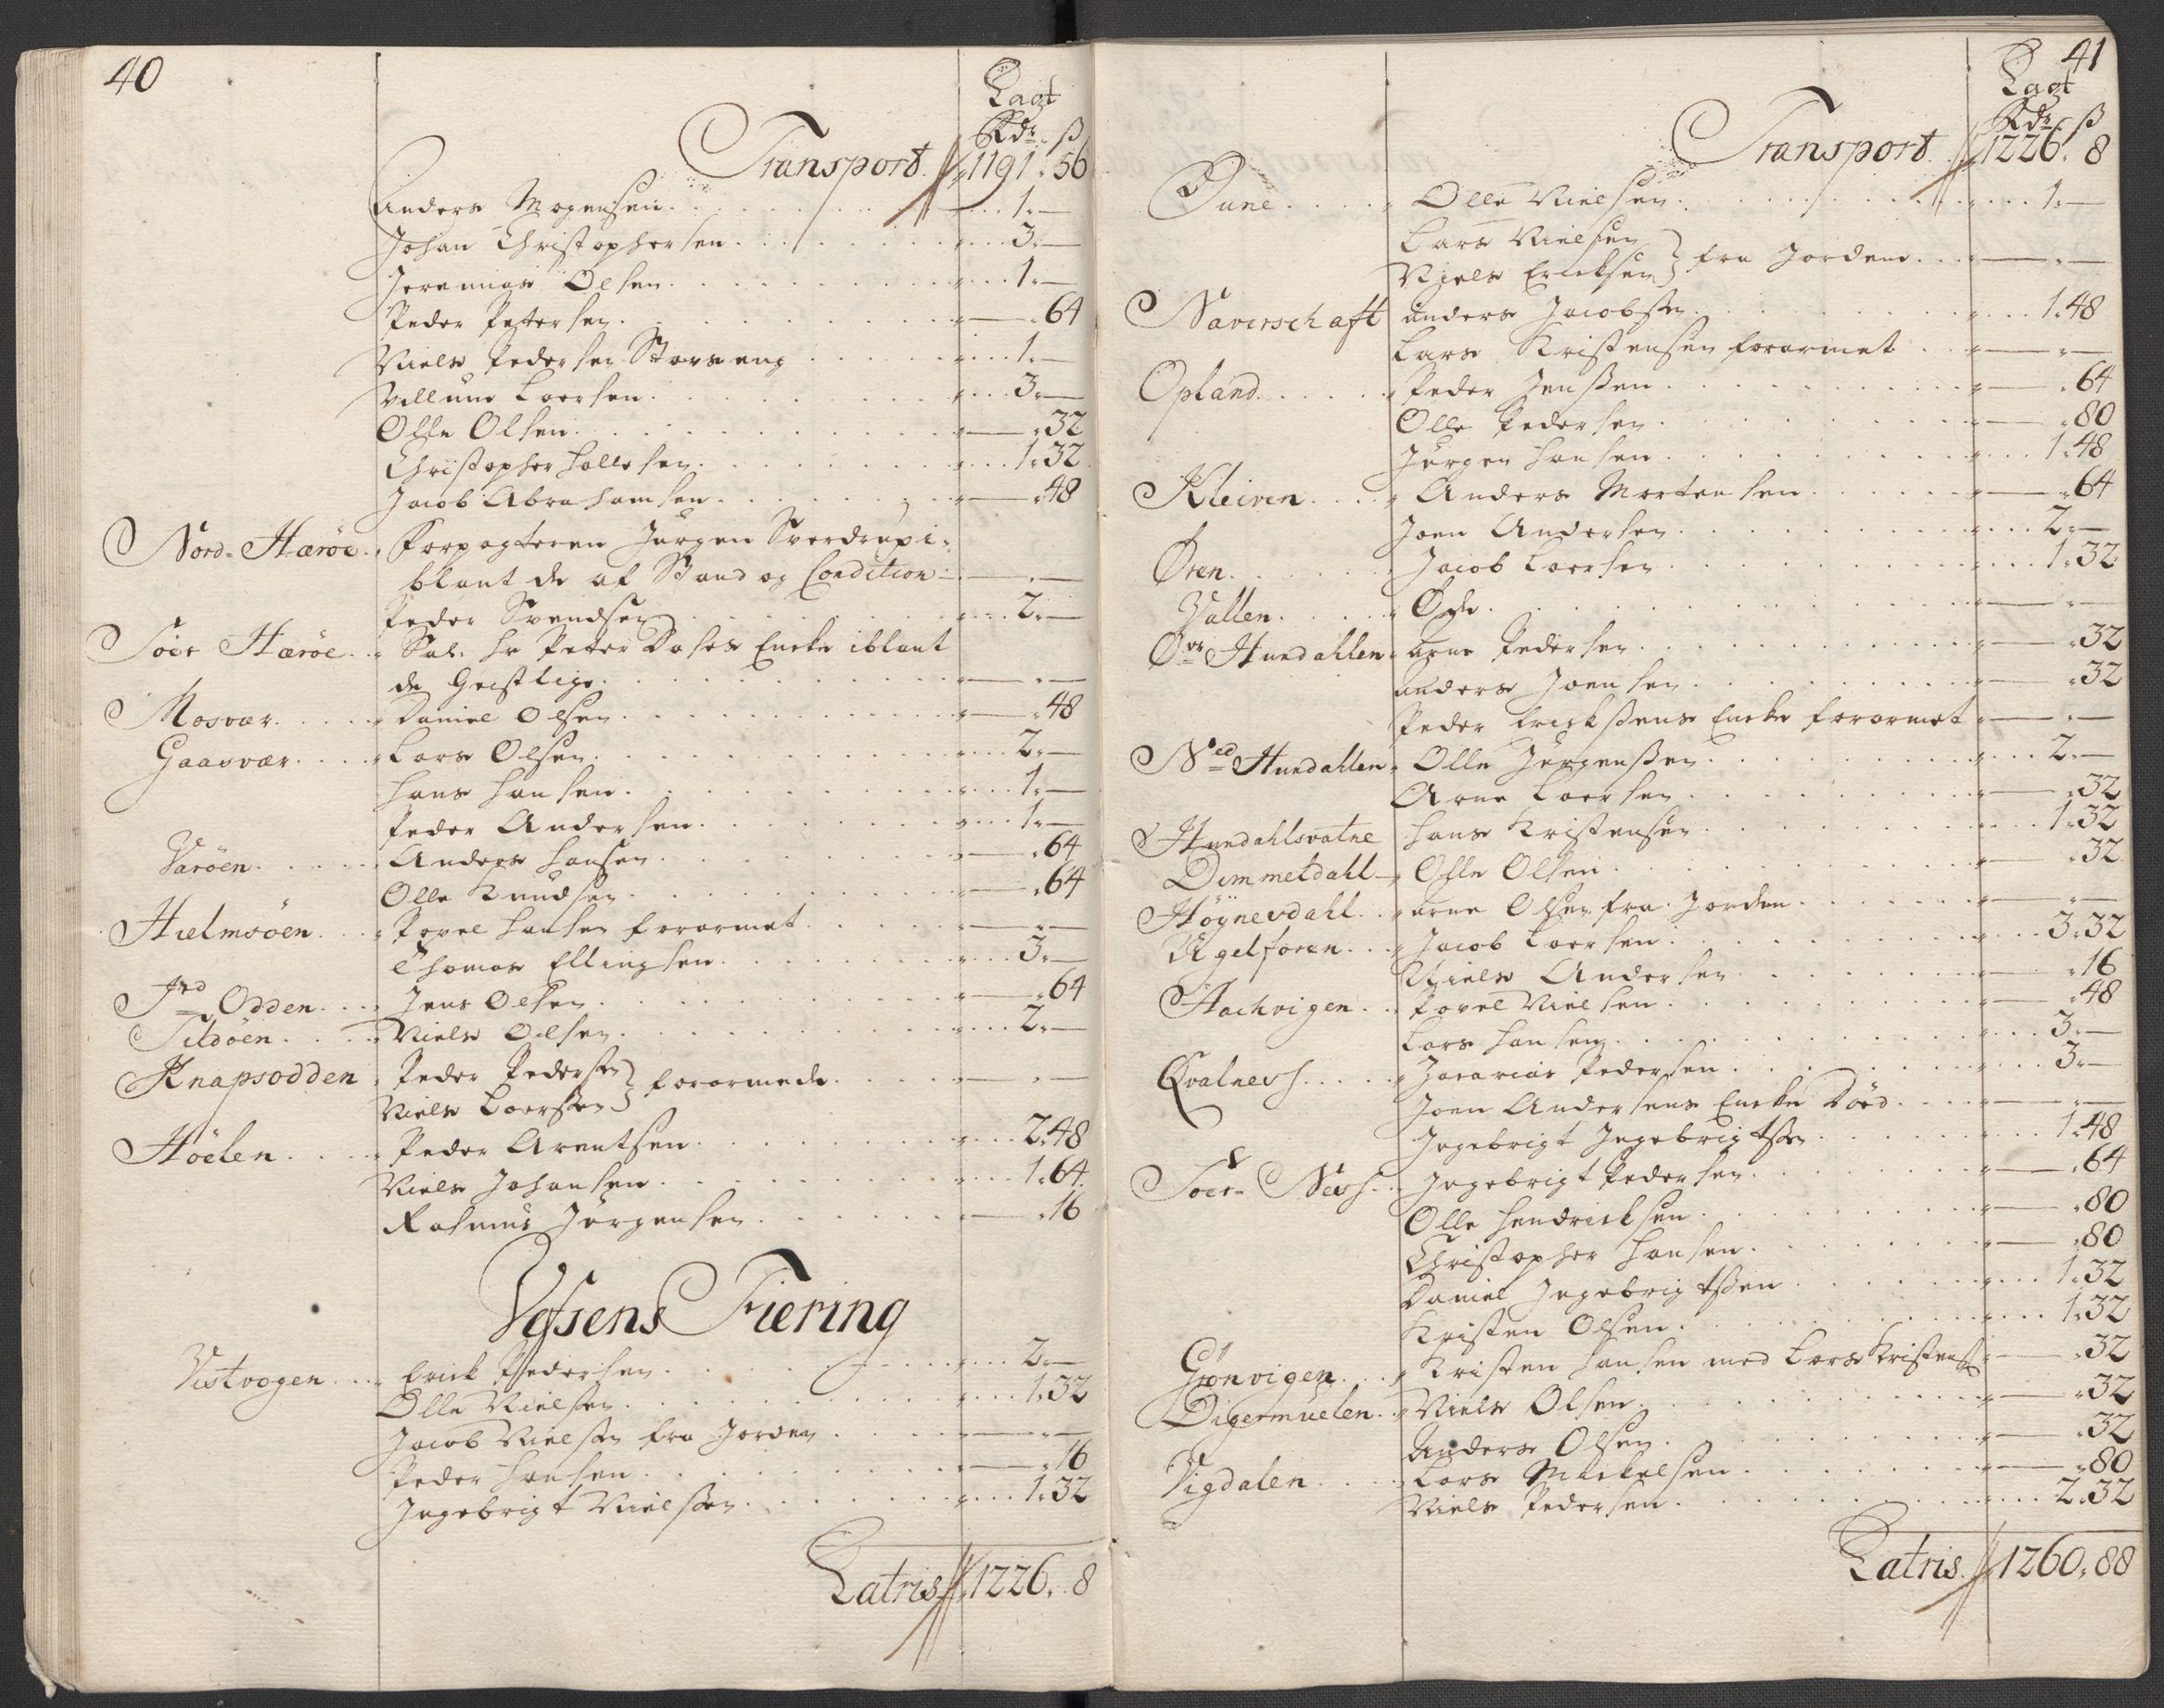 40
Lagt
Rdr ß
Transport 1191 „ 56
Anders Mogensen . . . 1 „ —
Johan Christophersen . . . 3 „ —
Jeremias Olsen . . . 1 „ —
Peder Petersen . . . — „ 64
Niels Pedersen Storseng . . . 1 „ —
Villum Loersen . . . 3 „ —
Olle Olsen . . . — „ 32
Christopher Hollesen . . . 1 „ 32
Jacob Abrahamsen . . . — „ 48
Nord-Hærøe „ Forpagteren Jurgen Sverdrup i-
blant de af Stand og Condition — „ —
Peder Svendsen . . . 2 „ —
Søer Hærøe „ Sal. Hr Peter Dases Encke iblant
de Geistlige . . . — „ —
Mosvær . . . „ Daniel Olsen . . . — „ 48
Gaasvær . . . „ Lars Olsen . . . 2 „ —
Hans Hansen . . . 1 „ —
Peder Andersen . . . 1 „ —
Varöen . . . „ Anders Hansen . . . — „ 64
Olle Knudsen . . . — „ 64
Hielmsöen . . . „ Povel Hansen forarmet . . . — „ —
Thomas Ellingsen . . . 3 „ —
Ind Odden . . . „ Jens Olsen . . . — „ 64
Tildöen . . . „ Niels Olsen . . . 2 „ —
Knapsodden „ Peder Pedersen } forarmede . . . — „ —
Niels Loerssen
Höelen . . . „ Peder Arentsen . . . 2 „ 48
Niels Johansen . . . 1 „ 64
Rasmus Jörgensen . . . — „ 16
Vefsens Fiering
Vistvogen . . . „ Erick Pedersen . . . 2 „ —
Olle Nielsen . . . 1 „ 32
Jacob Nielsen fra Jorden . . . — „ —
Peder Hansen . . . — „ 16
Ingebrigt Nielssen . . . 1 „ 32
Latris 1226 „ 8
41
Lagt
Rdr ß
Transport 1226 „ 8
Dune . . . „ Olle Nielsen . . . 1 „ —
Lars Nielsen
Niels Ericksen } fra Jorden . . . — „ —
Naverschaft Anders Jacobsen . . . 1 „ 48
Lars Kristensen forarmet . . . — „ —
Opland . . . „ Peder Jenssen . . . — „ 64
Olle Pedersen . . . — „ 80
Jürgen Hansen . . . 1 „ 48
Kleiven . . . „ Anders Mortensen . . . — „ 64
Joen Andersen . . . 2 „ —
Øren . . . Jacob Loersen . . . 1 „ 32
Vallen . . . „ Øde . . . — „ —
Øvr Hundahlen „ Arne Pedersen . . . — „ 32
Anders Joensen . . . — „ 32
Peder Erickssens Encke forarmet — „ —
Ned Hundahlen „ Olle Jürgenssen . . . 2 „ —
Arne Loersen . . . — „ 32
Hundahlsvatne Hans Kristensen . . . 1 „ 32
Dimmeldahl — „ Olle Olsen . . . — „ 32
Höynesdahl . . „ Arne Olsen fra Jorden . . . — „ —
Ugelforen . . . „ Jacob Loersen . . . 3 „ 32
Niels Andersen . . . — „ 16
Hachvigen . . . Povel Nielsen . . . — „ 48
Lars Hansen . . . 3 „ —
Qvalnesh . . . „ Zacarias Pedersen . . . 3 „ —
Joen Andersens Encke Död . . . — „ —
Ingebrigt Ingebrigtssen . . . 1 „ 48
Söer- Nesh . . Ingebrigt Pedersen . . . — „ 64
Olle Hendricksen . . . — „ 80
Christopher Hansen . . . — „ 80
Daniel Ingebrigtssen . . . 1 „ 32
Kristen Olsen . . . 1 „ 32
Grönvigen . . . „ Kristen Hansen med Lars Kristens: — „ 32
Digermuelen . . „ Niels Olsen . . . — „ 32
Anders Olsen . . . — „ 32
Vigdalen . . . „ Lars Mickelsen . . . — „ 80
Niels Pedersen . . . 2 „ 32
Latris 1260 „ 88